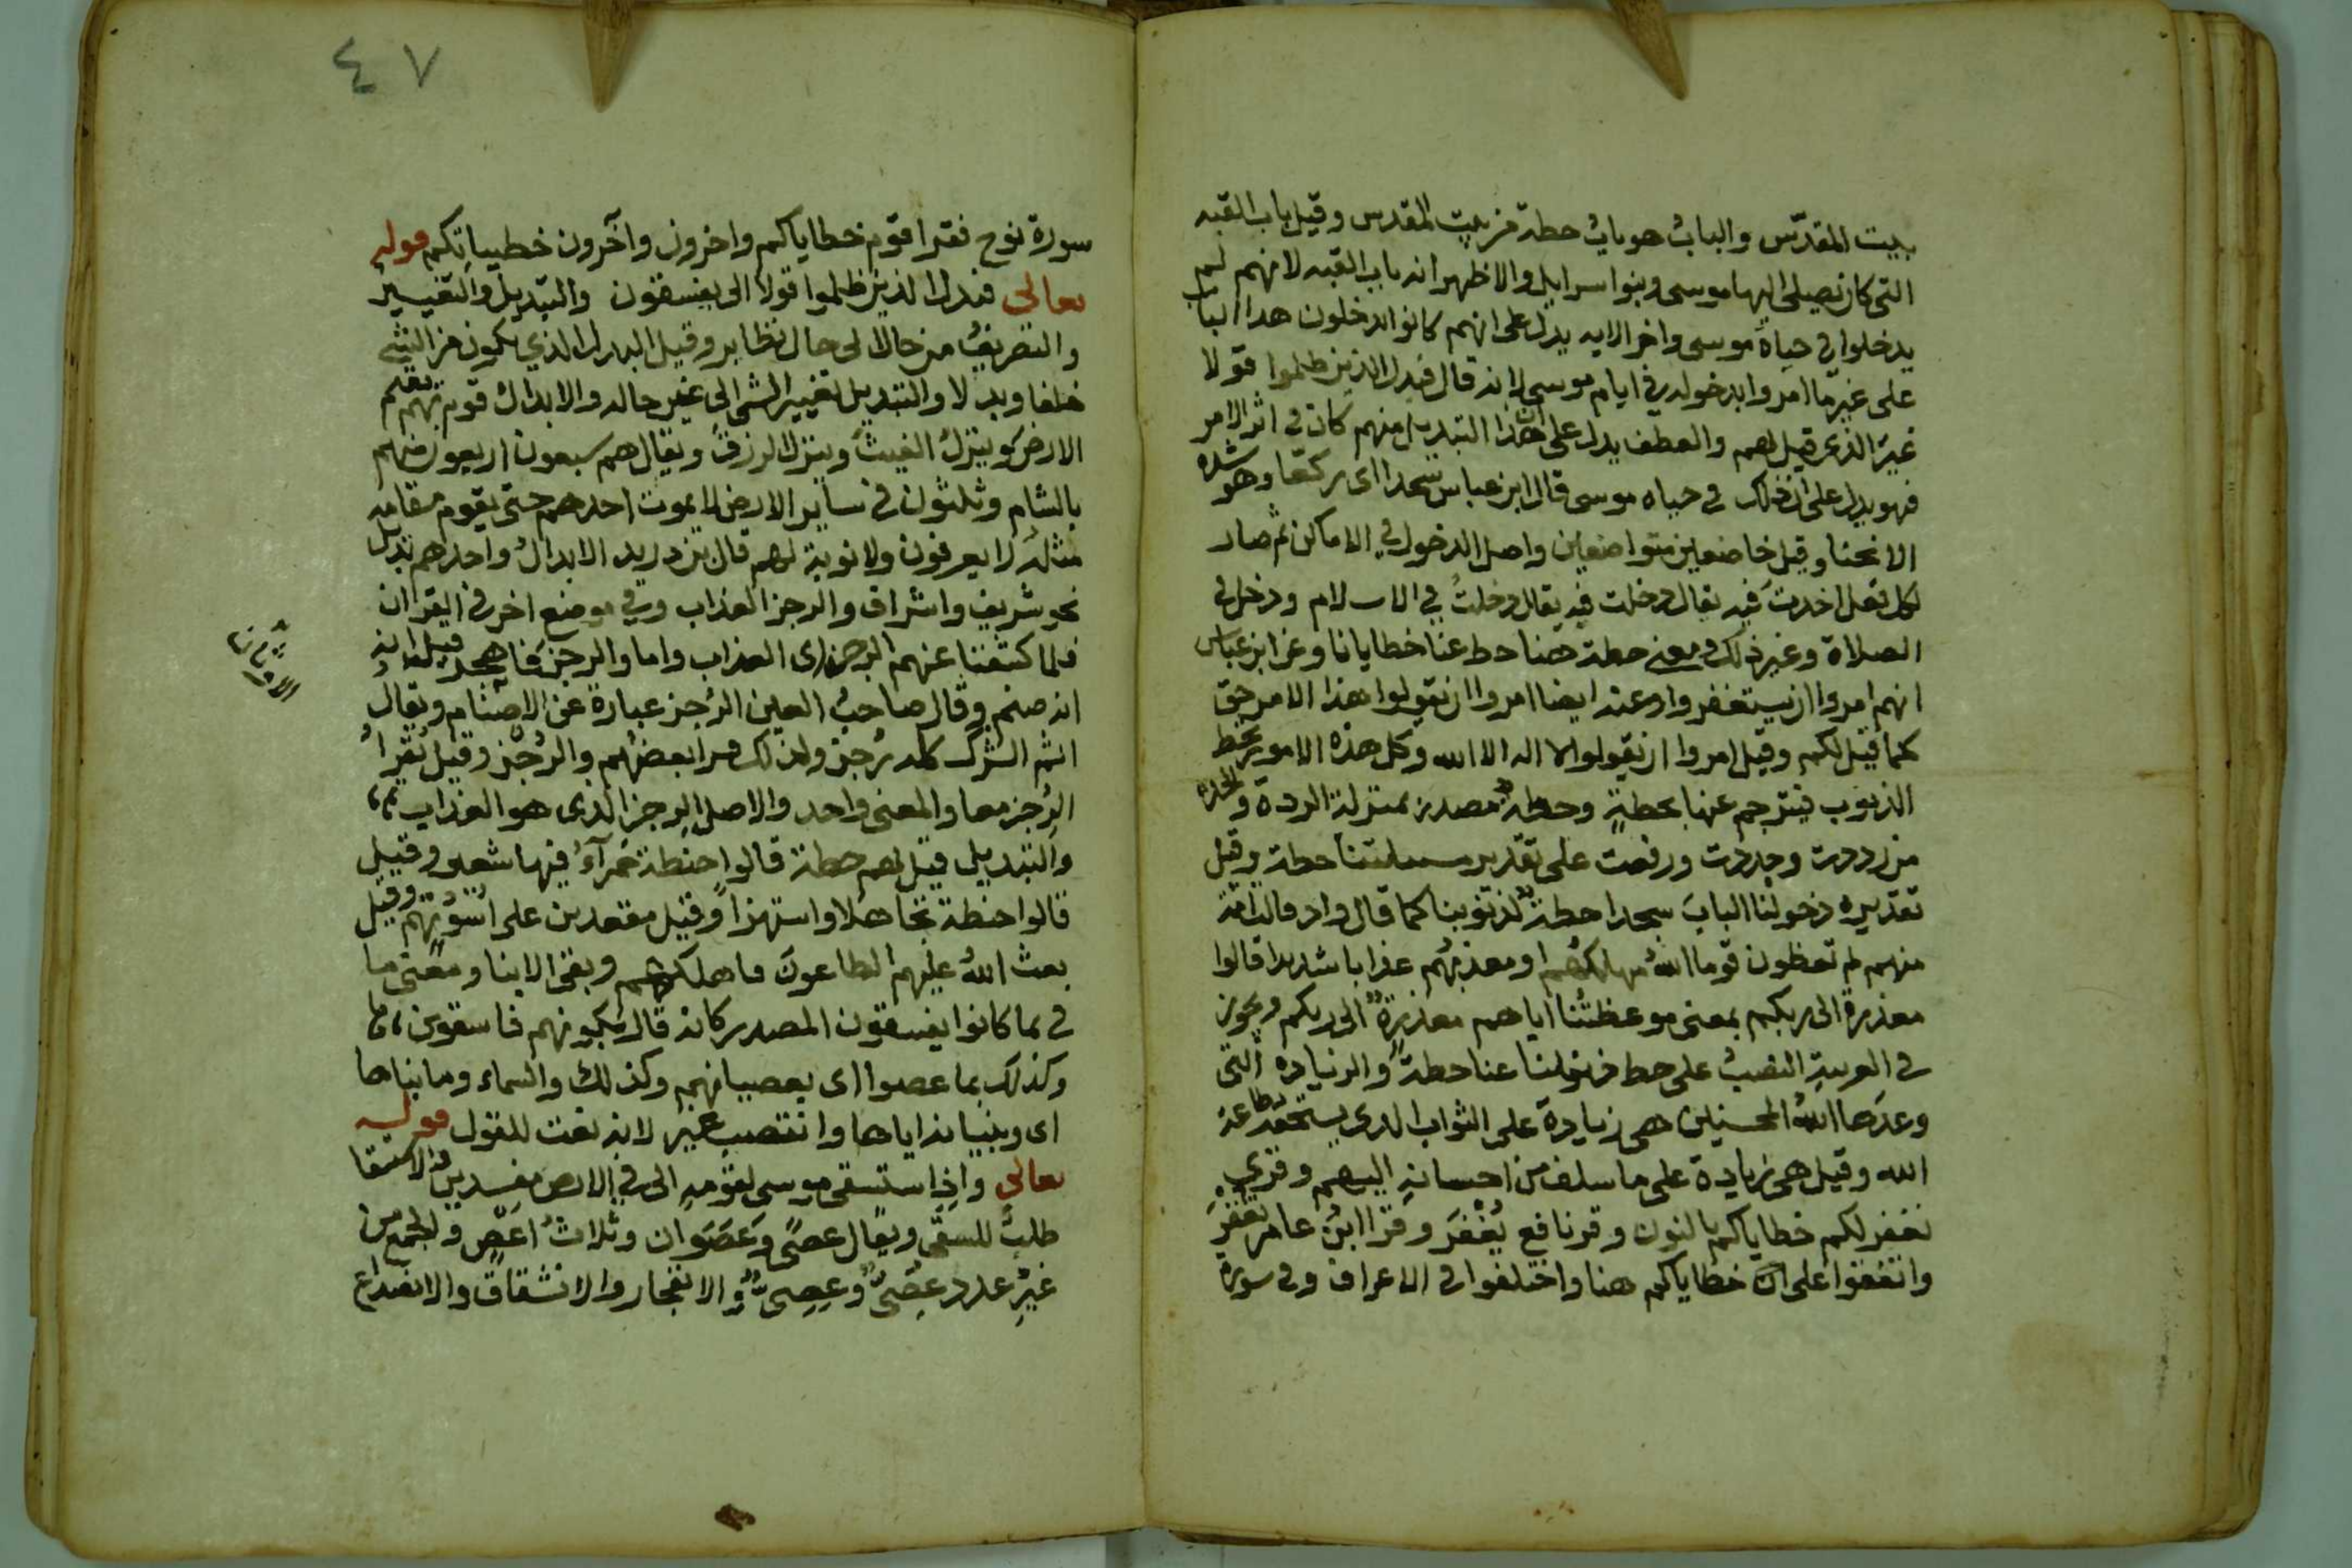 بيت المقدّس والبابُ هو بابُ حطة من بيت المقدس وقيل باب القبه
التى كان يصلى اليها موسى وبنوا سراييل والاظهر انه باب القبه لانهم لم
يدخلوا فى حياة موسى واخر الايه يدل على انهم كانوا يدخلون هدا الباب
على غير ما امروا بدخوله فى ايام موسى لانه قال فبدل الذين ظلموا قولا
غيرَ الذى قيل لهم والعطف يدل على ان هذا التبديل منهم كان فى اثر الامر
فهو يدل على ان ذلك فى حياه موسى قال ابن عباس سجدا اى ركعا وهو شده
الانحنا وقيل خاضعين متواضعين واصل الدخول فى الاماكن ثم صار
لكل فعل اخدتَ فيه يقال دخلت فيه يقال دخلتُ فى الاسلام ودخل فى
الصلاة وغير ذلك ومعنى حطة هنا حط عنا خطايانا وعن ابن عباس
انهم امروا ان يستغفروا وعنه ايضا امروا ان يقولوا هذا الامر حق
كما قيل لكم وقيل امروا ان يقولوا لا اله الا الله وكل هذه الامور تحط
الذنوب فيترجم عنها بحطةٍ وحطةٌ مصدر بمنزلة الردة والجدة
من رددت وجددت ورفعت على تقدير مسئلتنا حطة وقيل
تقديره دخولنا البابَ سجدا حطةٌ لذنوبنا كما قال واد قالت امة
منهم لم تعظون قوما اللهُ مهلكهُم او معذبهُم عذابا شديدا قالوا
معذرة الى ربكم بمعنى موعظتُنا اياهم معذرةٌ الى ربكم ويجوز
فى العربيةِ النصبُ على حط ذنوبنا عنا حطةً والزيادة التى
وعدها اللهُ المحسنين هى زيادة على الثواب الدى يستحقه طاعة
الله وقيل هى زيادة على ما سلف من احسانهِ اليهم وقرى
نغفر لكم خطاياكم بالنون وقر نافع يُغْفَر وقرا ابنُ عامر تُغْفَرْ
واتفقوا على انّ خطاياكم هنا واختلفوا فى الاعراف وفى سورة
٤٧
سورة نوح فقرا قوم خطاياكم واخرون وآخرون خطيباتِكم قوله
تعالى فبدل الذين ظلموا قولا الى يفسقون والتبديل والتغيير
والتصريفُ من حال الى حال نظاير وقيل البدل الذي يكون من الشى
خلفا وبدلا والتبديل تغيير الشى الى غير حاله والابدال قوم بهم يقيم
الارض وينزلُ الغيثُ وينزل الرزقُ ويقال هم سبعون اربعون منهم
بالشام وثلثون فى ساير الارض لا يموت احدهم حتى يقوم مقامه
مثلهُ لا يعرفون ولا نوبة لهم قال بن دريد الابدالُ واحدهم بديل
نحو شريف واشراف والرجز العذاب وفى موضع اخر فى القران
فلما كشفنا عنهم الرجز اى العذاب واما والرجز فاهجر قيل انه
انه صنم وقال صاحبُ العين الرُجز عبارة عن الاصنام ويقال
اثم الشرك كله رُجز ولذلك قرا بعضهُم والرُجْز وقيل يُقرا
الرِجز معا والمعنى واحد والاصل الرِجز الذى هو العذاب
والتبديل قيل لهم حطة قالوا حنطة حمرآءُ فيها شعير وقيل
قالوا حنطة تجاهلا واستهزاً وقيل مقعدين على استوُهِهم وقيل
بعث اللهُ عليهم الطاعونَ فاهلكهم وبقى الابنا ومعنى ما
فى بما كانوا يفسقون المصدر كانه قال بكونهم فاسقون
وكذلك بما عصوا اى بعصيانهم وكذلك والسماء وما بناها
اى وبنيانه اياها وانتصب غير لانه نعت للقول قوله
تعالى واذا ستسقى موسى لقومهِ الى فى الارض مفسدين الاستسقا
طلبُ للسقى ويقال عصًى وعَصَوان وثلاثُ اعَصٍ والجمع من
غيرِ عدد عِصِىٌّ وعُصِىٌّ والانفجار والانشقاق والانصداع